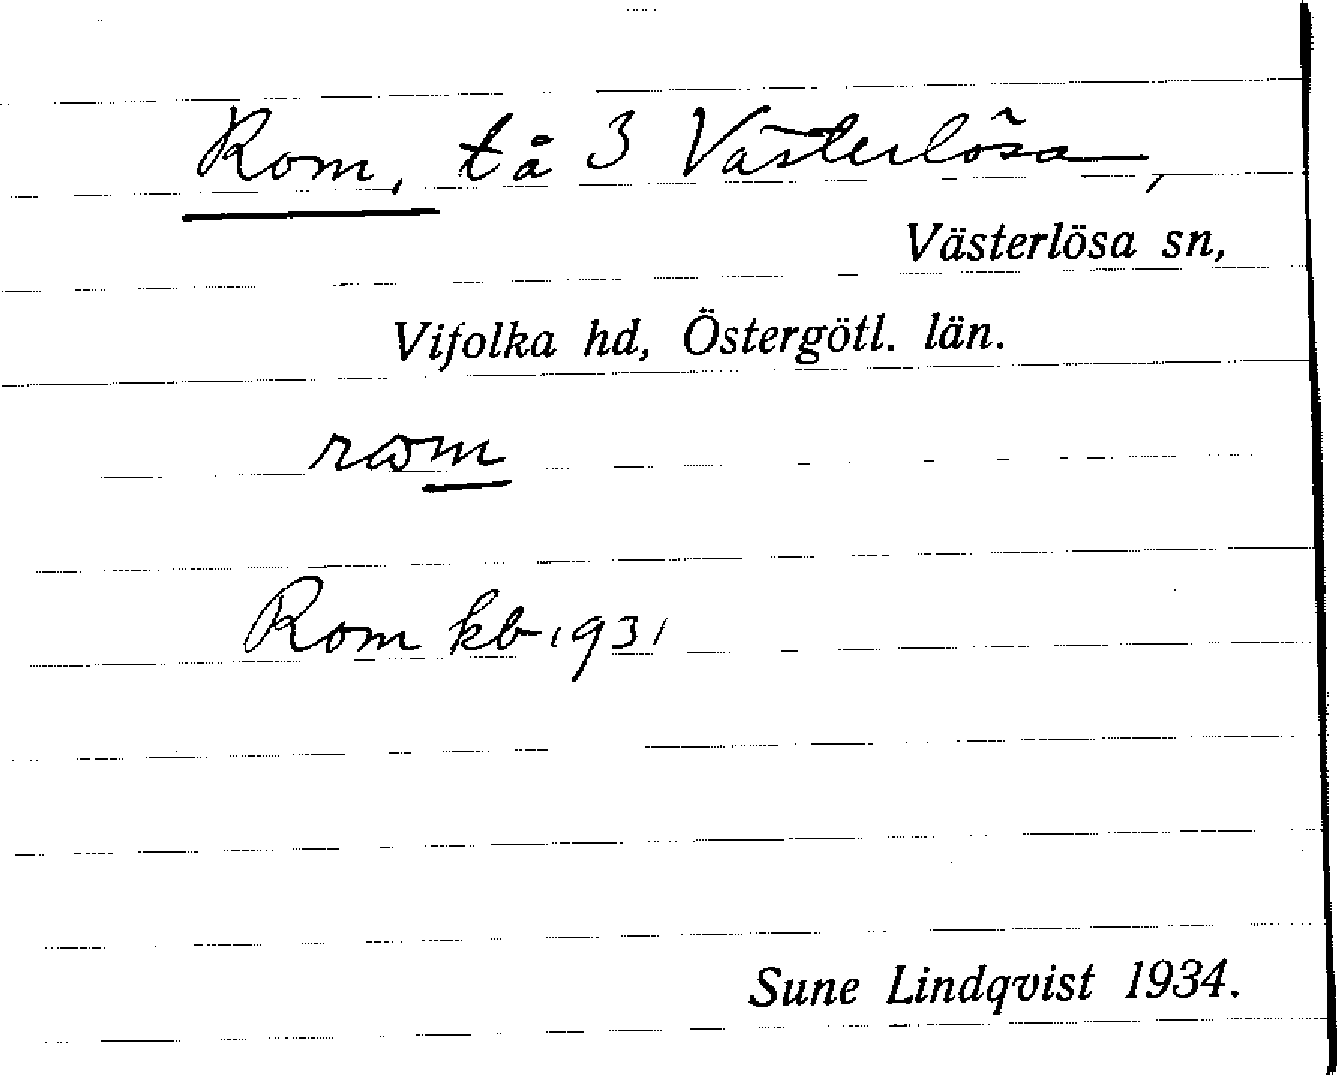 Rom, tå 3 Västerlösa,
Västerlösa sn,
Vifolka hd, Östergötl. län.
rωm
Rom kb 1931
Sune Lindqvist 1934.